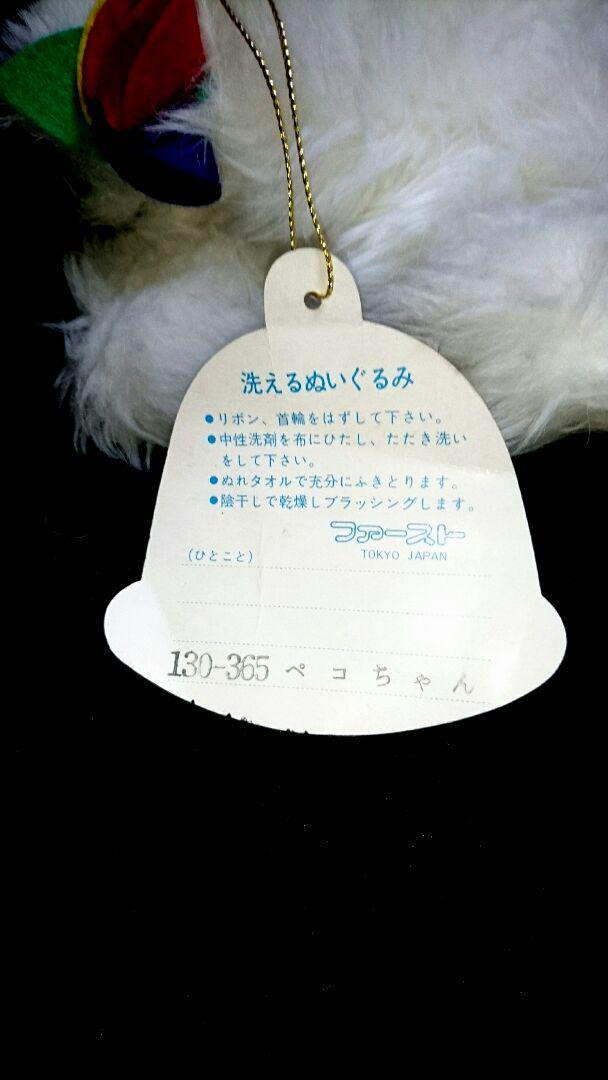 洗えるぬいぐるみ
●リボン、首輪をはずして下さい。
●中性洗剤を布にひたし、たたき洗い
をして下さい。
●ぬれタオルで充分にふきとります。
●陰干しで乾燥しブラッシングします。
ファースト
TOKYO JAPAN
(ひとこと)
130-365 ペコちゃん